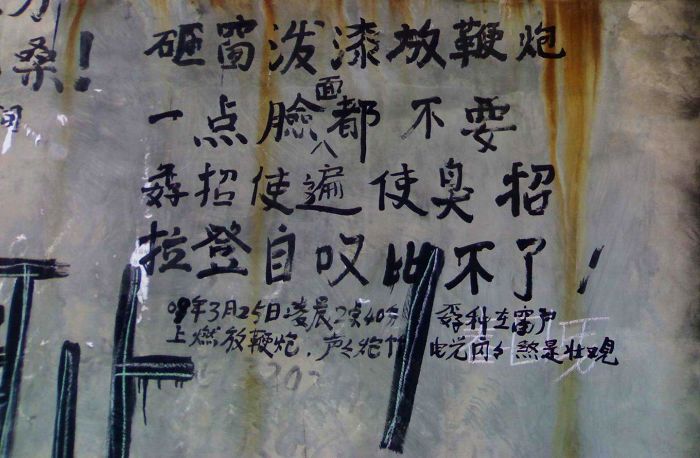 桑！
间
砸窗泼漆放鞭炮
一点臉面都不要
孬招使遍使臭招
拉登自叹比不了！
年3月25日凌晨2点40分 孬种在窗户
上燃放鞭炮，声々炮竹 电光闪々煞是壮观